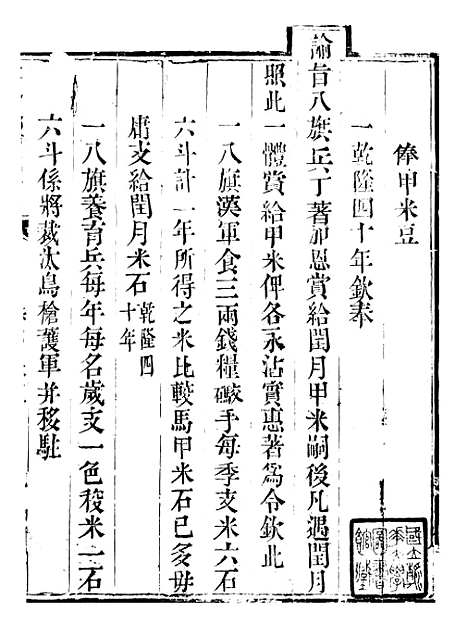 俸甲米豆
一乾隆四十年欽奉
諭旨八旗兵丁著加恩賞給閏月甲米嗣後凡遇閏月
照此一體賞給甲米俾各永沾實惠著爲令欽此
一八旗漢軍食三兩錢糧礮手每季支米六石
六斗計一年所得之米比較馬甲米石已多毋
庸支給閏月米石乾隆四
十年
一八旗養育兵每年每名歲支一色稄米二石
六斗係將裁汰鳥槍護軍并移駐